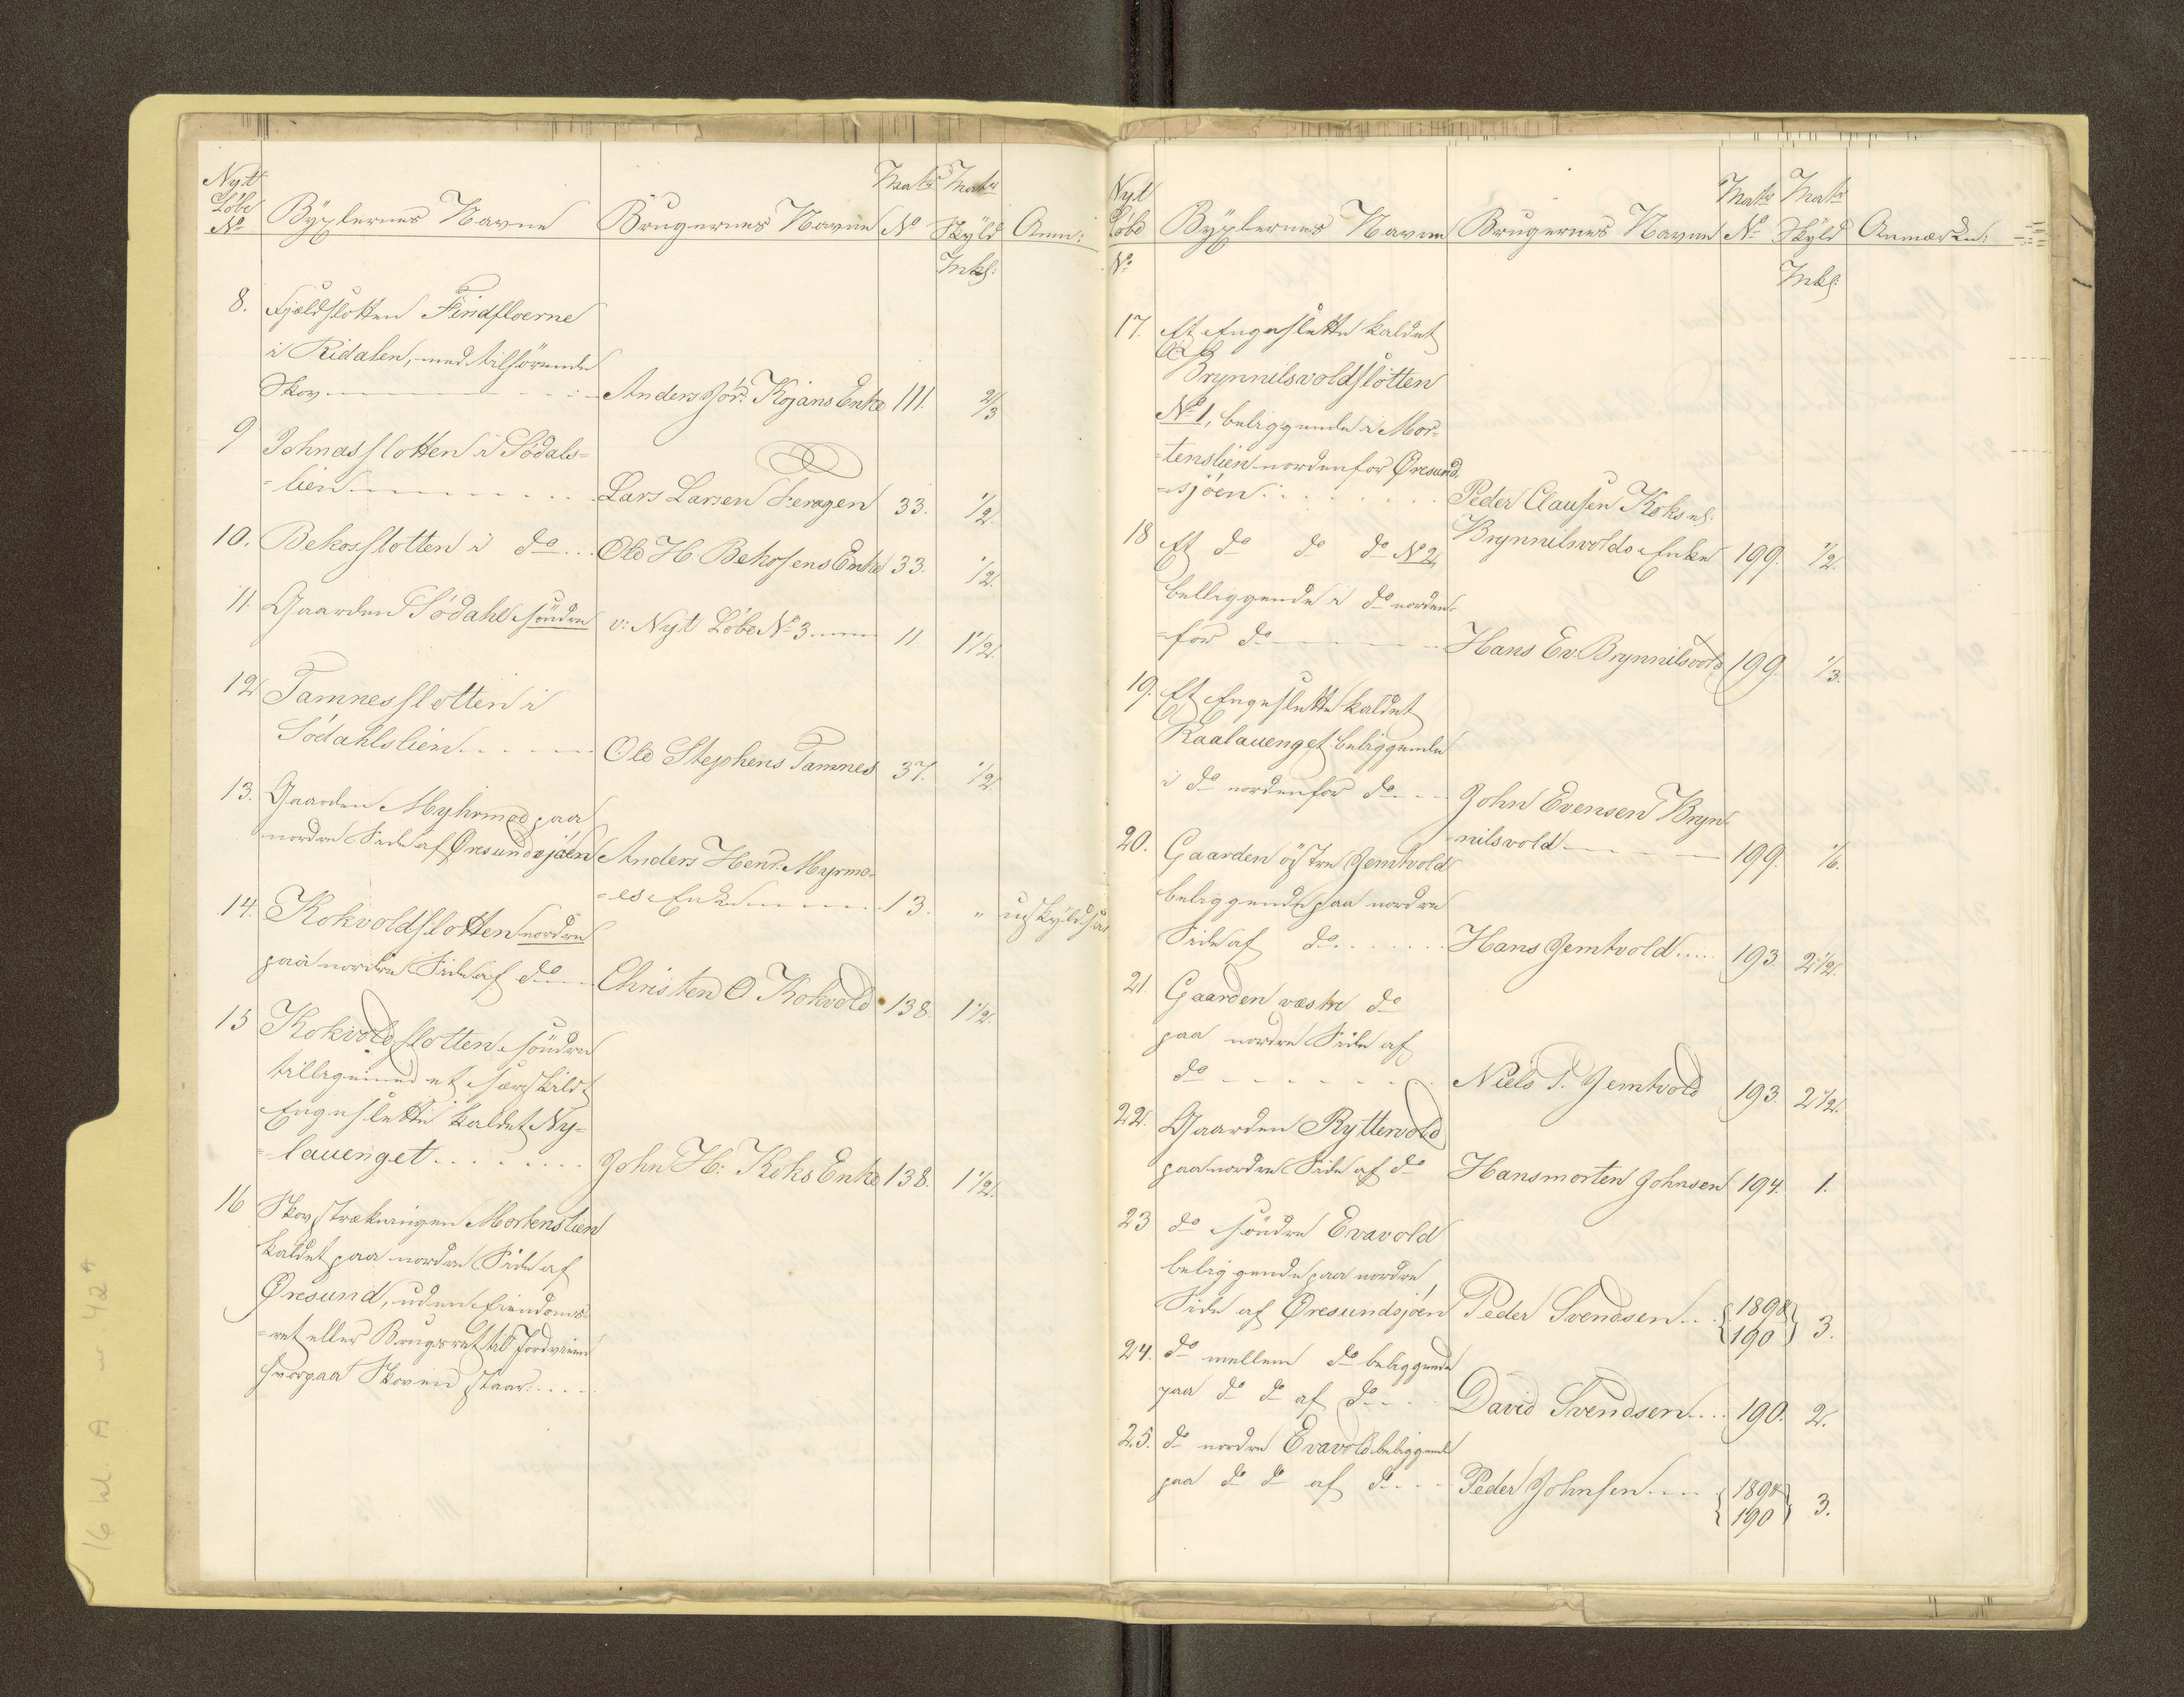 Nyt
Løbe
No
Byxlernes Navne
Brugernes Navne
Matr
No
Matr
Skyld
Mksl:
Anm:
8. Fjeldslotten Findfloerne
i Ridalen, med tilhörende
Skov
Anders Jörs. Kojans Enke 111. 2/3
9 Johnasslotten i Södals=
=lien
Lars Larsen Feragen 33. 1/2.
10. Bekosslotten i do
Ole H Bekosens Enke 33. 1/2.
11. Gaarden Södahl söndre
v: Nyt Löbe No 3 11 1 1/2.
12 Tamnesslotten i
Södahlslien
Ole Stephens Tamnes 37. 1/2.
13. Gaarden Myhrmoe paa
nordre Side af Øresundsjöen
Anders Henr. Myrmo=
=es Enke 13. " uskyldsat
14. Kokvoldslotten nordre
paa nordre Side af do
Christen O Kokvold 138. 1 1/2.
15 Kokvoldslotten söndre
tilligemed et særskildt
Engeslette kaldet Ny=
=lauenget
John H: Koks Enke 138. 1 1/2.
16 Skovstrækningen Mortenslien
kaldet paa nordre Side af
Øresund, uden Eiendoms=
=ret eller Brugsret til Jordveien
hvorpaa Skoven staar
Nyt
Løbe
No
Byxlernes Navne
Brugernes Navne
Matr
No
Matr
Skyld
Mksl:
Anmærkn:
17. Et Engeslette kaldet
Brynnilsvoldslotten
No 1, beliggende i Mor=
=tenslien nordenfor Øresund
=sjöen
Peder Clausen Koks el.
Brynnilsvolds Enke 199. 1/2.
18 Et do do do No 2,
belliggende i do norden=
=for do
Hans Ev. Brynnilsvold 199. 1/3.
19. Et Engeslette kaldet
Raalauenget beliggende
i do nordenfor do
John Evensen Bryn=
=nilsvold 199. 1/6.
20. Gaarden östre Jemtvold
beliggende paa nordre
Side af do
Hans Jemtvold 193. 2 1/2.
21. Gaarden vestre do
paa nordre Side af
do
Niels P. Jemtvold 193. 2 1/2.
22. Gaarden Ryttervold
paa nordre Side af do
Hansmorten Johnsen 194. 1.
23 do söndre Evavold
beliggende paa nordre
Side af Øresundsjöen
Peder Svendsen {189&
190} 3.
24. do mellem do beliggende
paa do do af do
David Svendsen 190. 2.
25. do nordre Evavold beliggende
paa do do af do
Peder Johnsen {189&
190} 3.
16 kl. A w 42 4